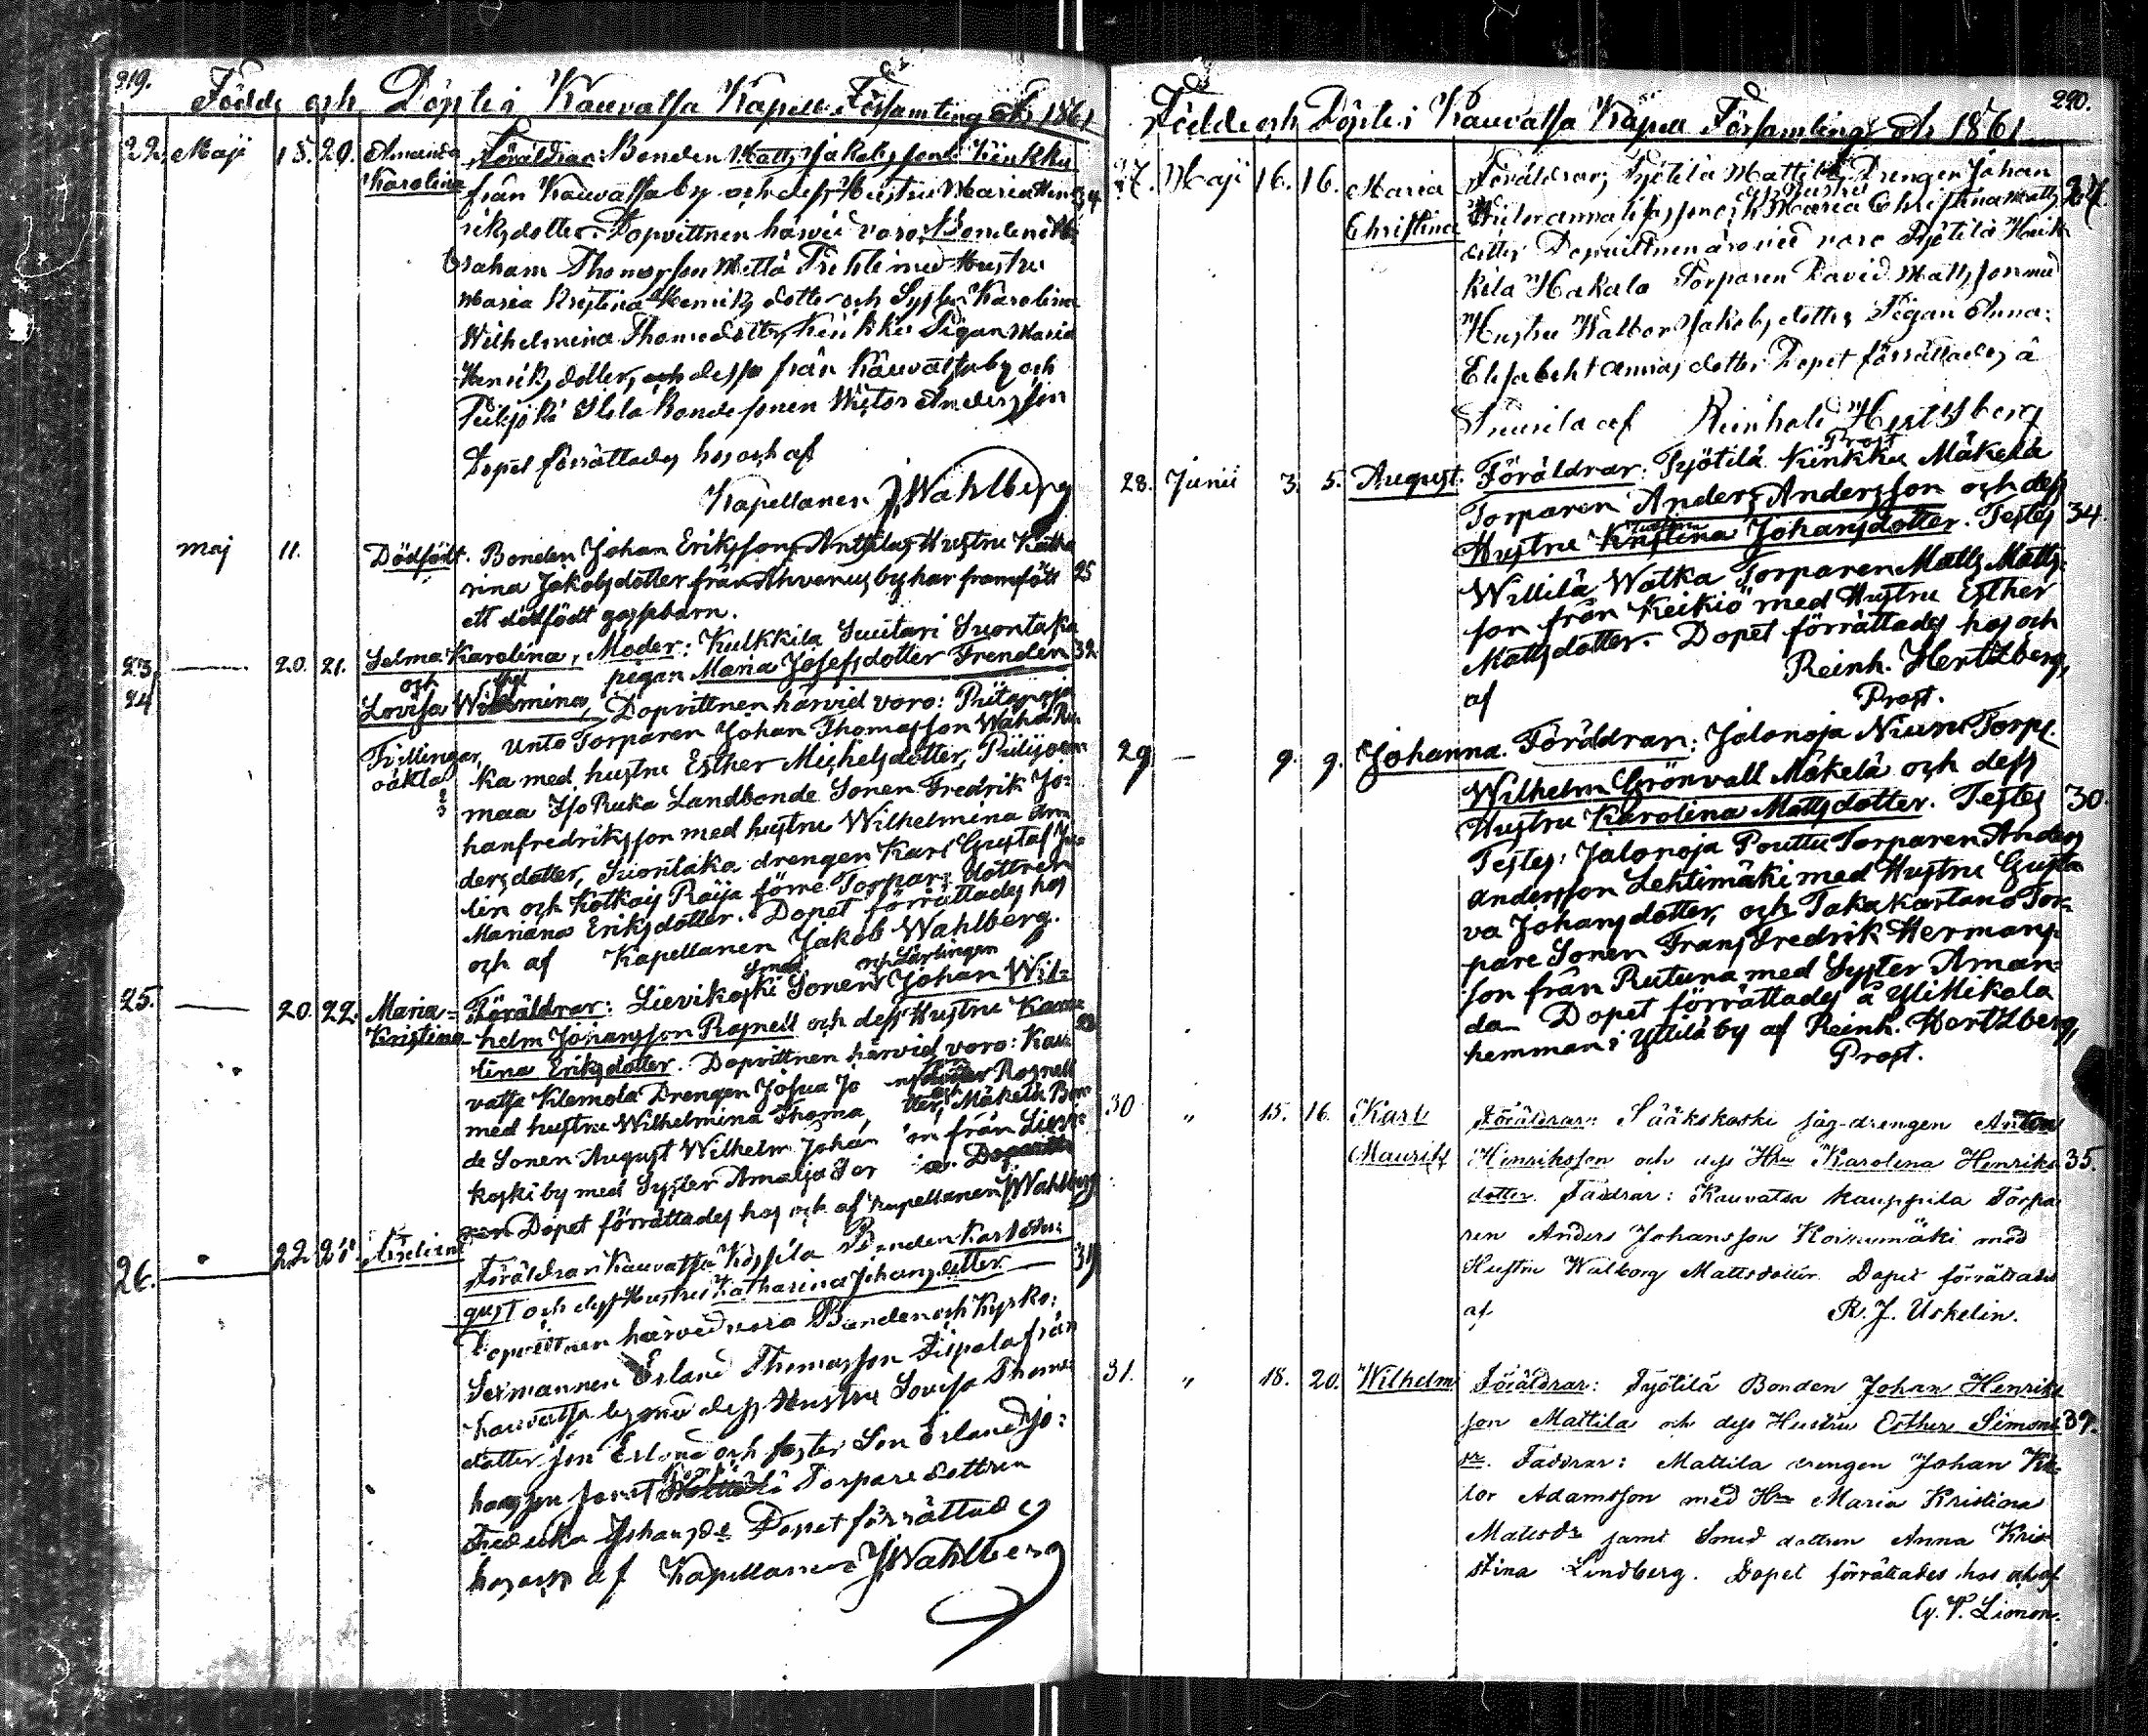 219.
Födde och Döpte i Kauvatsa Kapell Församling År 1861
22. Maji 15. 20. Amanda Föräldrar: Bonden Matts Jakobsson Kinkku
Karolina från Kauvatsa by och dess Hustru Maria Hen 34
riksdotter. Dopvittnen härvid voro: Bonden Ab
raham Thomasson Mellä med Hustru
Maria Kristina Henriksdotter och Syster Karolina
Wilhelmina Thomasdotter, Kinkku Pigan Maria
Henriksdotter, och dessa från Kauvatsa by och
Bondesonen Wictor Andersson
Dopet förrättades hos och af
Kapellanen J. Wahlberg
Maj 11. Dödfödt. Bonden Johan Eriksson Anttilas Hustru Katha
rina Jakobsdotter från Ahvenus by har framfödt 25
ett dödfödt gossebarn.
23. — 20. 21. Selma Karolina, Moder: Kulkkila Suutari Suontaka
och pigan Maria Josefsdotter Frenden 32
24 Lovisa Wilhelmina, Dopvittnen härvid voro: Piitanoja
Tvillingar, Unto Torparen Johan Thomasson Waha Ru
oäkta ka med hustru Esther Michelsdotter, Piilijoen
maa Iso Ruka Landbonde Sonen Fredrik Jo:
hanfredriksson med hustru Wilhelmina An
dersdotter, Suontaka drengen Karl Gustaf Ju
lin och Kotkais Raija förre Torpars dottren
Mariana Eriksdotter. Dopet förrättades hos
och af Kapellanen Jakob Wahlberg.
Smed och Lärlingen
25. — 20. 22. Maria= Föräldrar: Lievikoski Sonen Johan Wil=
Kristina helm Johansson Rosnell och dess Hustru Karo
lina Eriksdotter. Dopvittnen härvid voro: Kau
vatsa Klemola Drengen Josua Jo Rosnell
med hustru Wilhelmina Thoma tter, Mäkelä Bon
de Sonen August Wilhelm Johan on från Lievi
koski by med Syster Amalja
Dopet förrättades hos och af Kapellanen J Wahlberg
26. — 22. Föräldrar Kauvatsa Köpilä Bonden Karl Au:
gust och dess Hustru Katharina Johansdotter 31
Dopvittnen härved vora Bonden och Kyrko:
Sexmannen Erland Thomasson Piipala från
Kauvatsa by med dess Hustru Lovisa Thomas
dotter son Erland och foster Son Erland Jo:
hansson samt Torpare dottren
Fredrika Johansdr Dopet förrättades
hos och af Kapellanen J Wahlberg
220.
Födde och Döpte i Kauvatsa Kapell Församling År 1861
27. Maji 16. 16. Maria Föräldrar; Pyötilä Mattila Drengen Johan
och Hustru
Christina Maria Christina Matts 27.
dotter Dopvittnen ärvid voro Pyötilä Heik
kilä Hakala Torparen David Mattsson med
Hustru Walbor Jakobsdotter Pigan Anna:
Elisabeht Anniasdotter Dopet förrättades å
Tuurila af Reinhold Hertzberg
Prost
28. Junii 3. 5. August. Föräldrar: Pyötilä Kinkku Mäkelä
Torparen Anders Andersson och dess
Hustru Kristina Johansdotter. Testes 34.
Willilä Watka Torparen Matts Matts:
son från Keikiö med Hustru Esther
Mattsdotter. Dopet förrättades hos och
af Reinh. Hertzberg,
Prost.
29 — 9. 9. Johanna. Föräldrar: Jalonoja Niuni Torp.
Wilhelm Grönvall Mäkelä och dess
Hustru Karolina Mattsdotter. Testes 30.
Testes: Jalonoja Pouttu Torparen Anders
Andersson Lehtimäki med Hustru Gusta
va Johansdotter, och Takakartano Tor=
pare Sonen Frans Fredrik Hermans=
son från Rutuna med Syster Aman=
da. Dopet förrättades å Yli Mikola
hemman i Yttilä by af Reinh. Hertzberg,
Prost.
30 " 15. 16. Karl Föräldrar: Sääkskoski såg-drengen Anton
Maurits Henriksson och dess Hru Karolina Henriks 35.
dotter. Faddrar: Kauvatsa Kauppila Torpa
ren Anders Johansson Koivumäki med
Hustru Walborg Mattsdotter. Dopet förrättades
af R. J. Uskelin.
31. " 18. 20. Wilhelm Föräldrar: Pyötilä Bonden Johan Henriks
son Mattila och dess Hustru Esther Simons 39.
dr. Faddrar: Mattila drengen Johan Vik
tor Adamsson med Hru Maria Kristina
Mattsdr samt Smed dottren Anna Kris
stina Lindberg. Dopet förrättades hos och af
G. V. Limon.